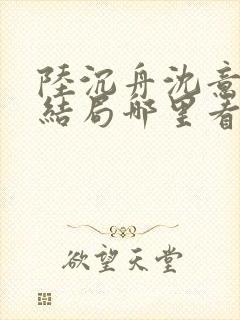 陸沉舟沈意
結局哪里看
欲望天堂